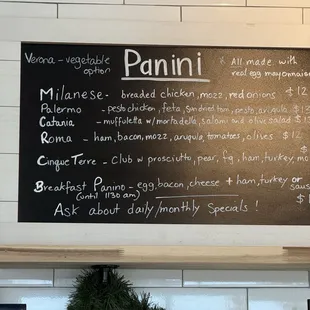 Verona - vegetable option
Panini
* All made with real egg mayonnaise
Milanese - breaded chicken, mozz, red onions $12
Palermo - pesto chicken, feta, sundried tom, pesto, arugula $13
Catania - muffuletta w/ mortadella, salami and olive salad $13
Roma - ham, bacon, mozz, arugula, tomatoes, olives $12
Cinque Terre - club w/ prosciutto, pear, fig, ham, turkey, mo
Breakfast Panino - egg, bacon, cheese + ham, turkey or saus
(until 1130 am)
Ask about daily/monthly Specials!